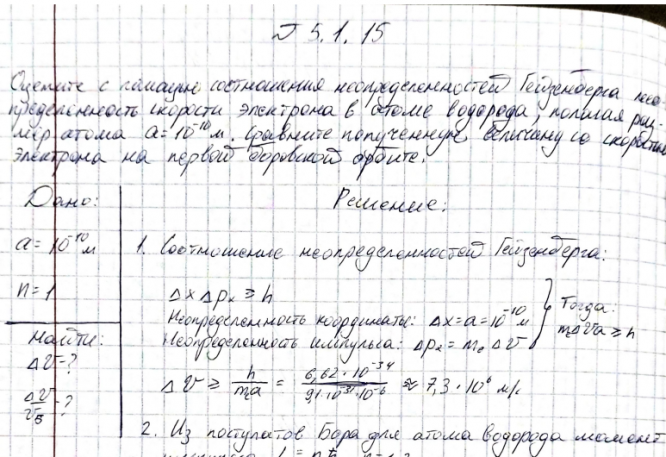 № 5.1.15
Оцените с помощью соотношения неопределенностей Гейзенберга нео-
пределенность скорости электрона в атоме водорода, полагая раз-
мер атома a=10⁻¹⁰ м. Сравните полученную величину со скоростью
электрона на первой боровской орбите.
Дано:
a = 10⁻¹⁰ м
n = 1
Найти:
ΔV-?
ΔV/V_Б -?
Решение:
1. Соотношение неопределенностей Гейзенберга:
Δx Δpₓ ≥ h
Неопределенность координаты: Δx = a = 10⁻¹⁰ м
Неопределенность импульса: Δpₓ = mₑ ΔV
} Тогда:
mₑΔVa ≥ h
ΔV ≥ h/(mₑa) = 6,62·10⁻³⁴/(9,1·10⁻³¹·10⁻⁶) ≈ 7,3·10⁶ м/с
2. Из постулатов Бора для атома водорода момент